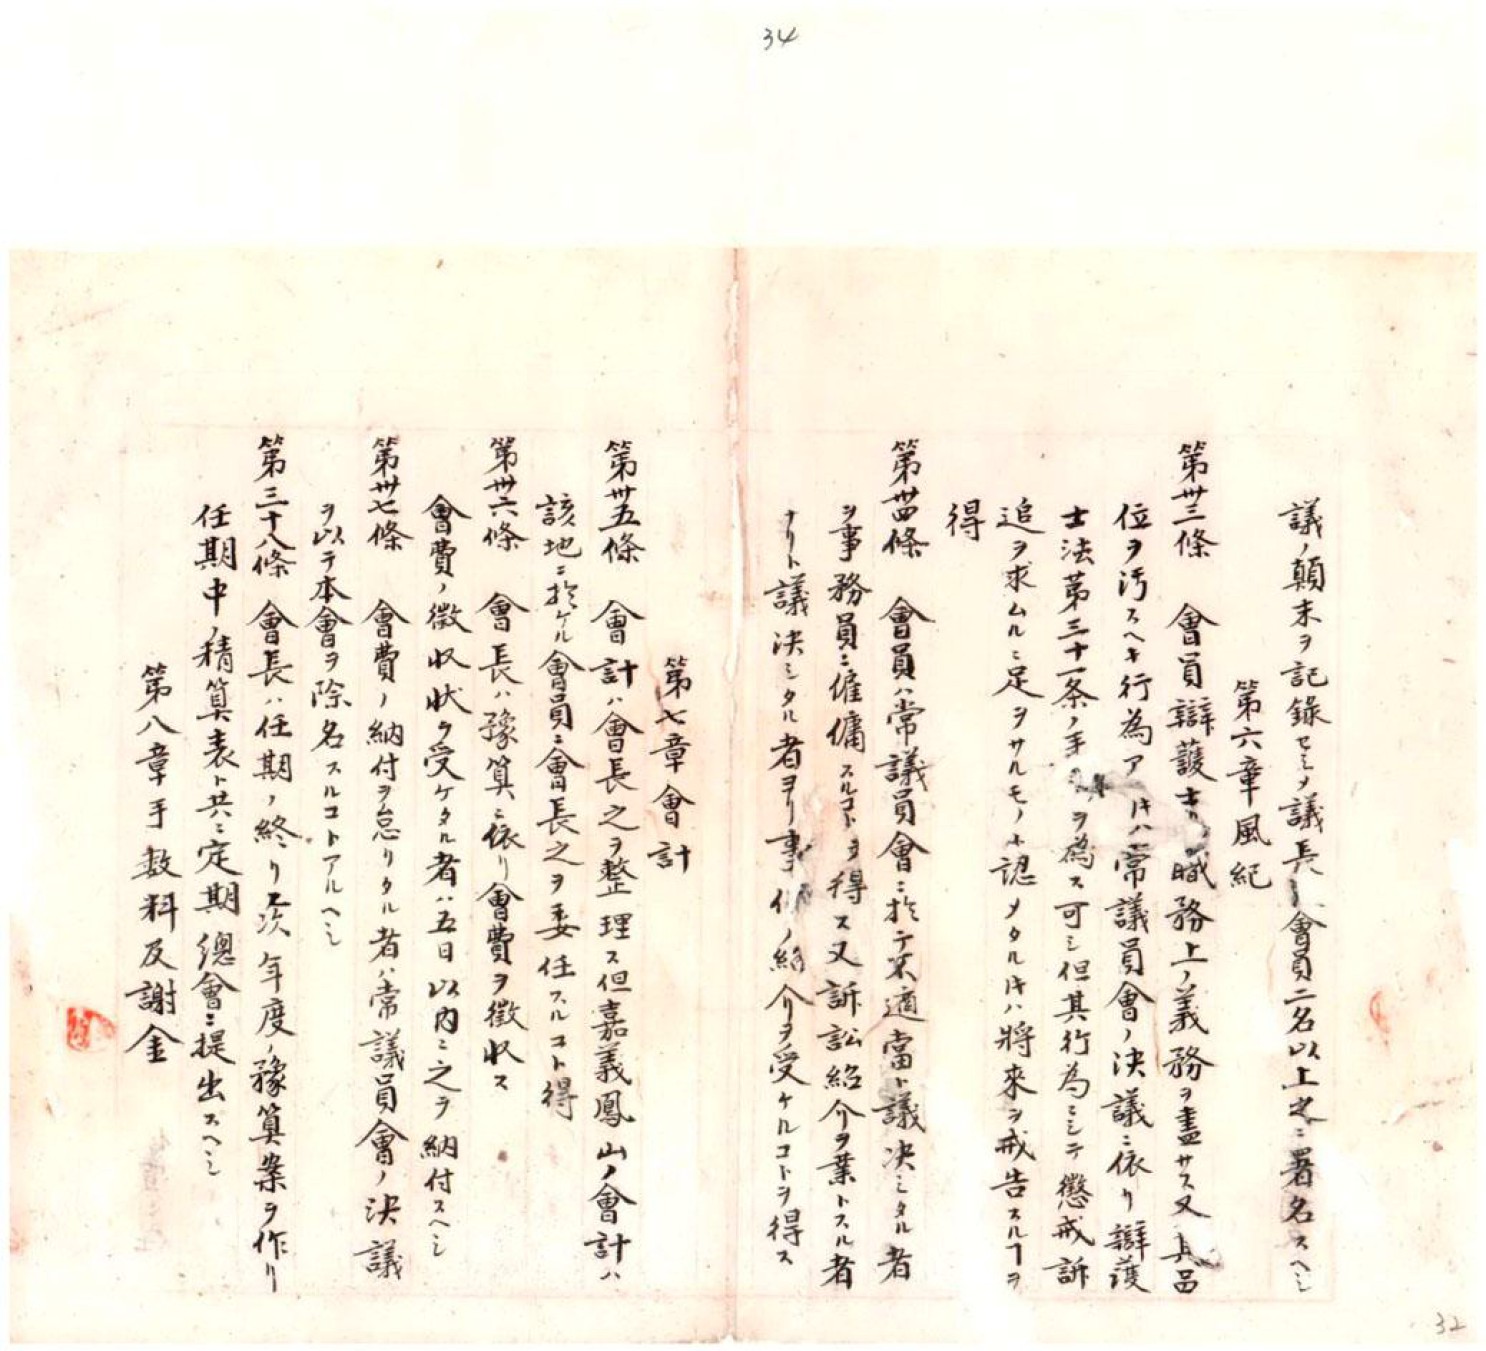 34
議ノ顛末ヲ記錄セシメ議長 會員二名以上之ニ署名スヘシ
第六章風紀
第卅三條 會員辯護士ノ職務上ノ義務ヲ盡サス又其品
位ヲ汚スヘキ行為ア ㆎハ常議員會ノ決議ニ依リ辯護
士法第三十一条ノ手 ヲ為ス可シ但其行為ニシテ懲戒訴
追ヲ求ムルニ足ヲサルモノト認メタルㆎハ將來ヲ戒告スルヿヲ
得
第卅四條 會員ハ常議員會ニ於テ不適當ト議決シタル者
ヲ事務員ニ傭傭スルコトヲ得ス又訴訟紹介ヲ業トスル者
ナリト議決シタル者ヨリ事件ノ紹介ヲ受ケルコトヲ得ス
第七章會計
第卅五條 會計ハ會長之ヲ整理ス但嘉義鳳山ノ會計ハ
該地ニ於ケル會員ニ會長之ヲ委任スルコト得
第卅六條 會長ハ豫算ニ依リ會費ヲ徵收ス
會費ノ徵收狀ヲ受ケタル者ハ五日以內ニ之ヲ納付スヘシ
第卅七條 會費ノ納付ヲ怠リタル者ハ常議員會ノ決議
ヲ以テ本會ヲ除名スルコトアルヘシ
第三十八條 會長ハ任期ノ終リニ次年度ノ豫算案ヲ作リ
任期中ノ精算表ト共ニ定期總會ニ提出スヘシ
第八章手數料及謝金
32